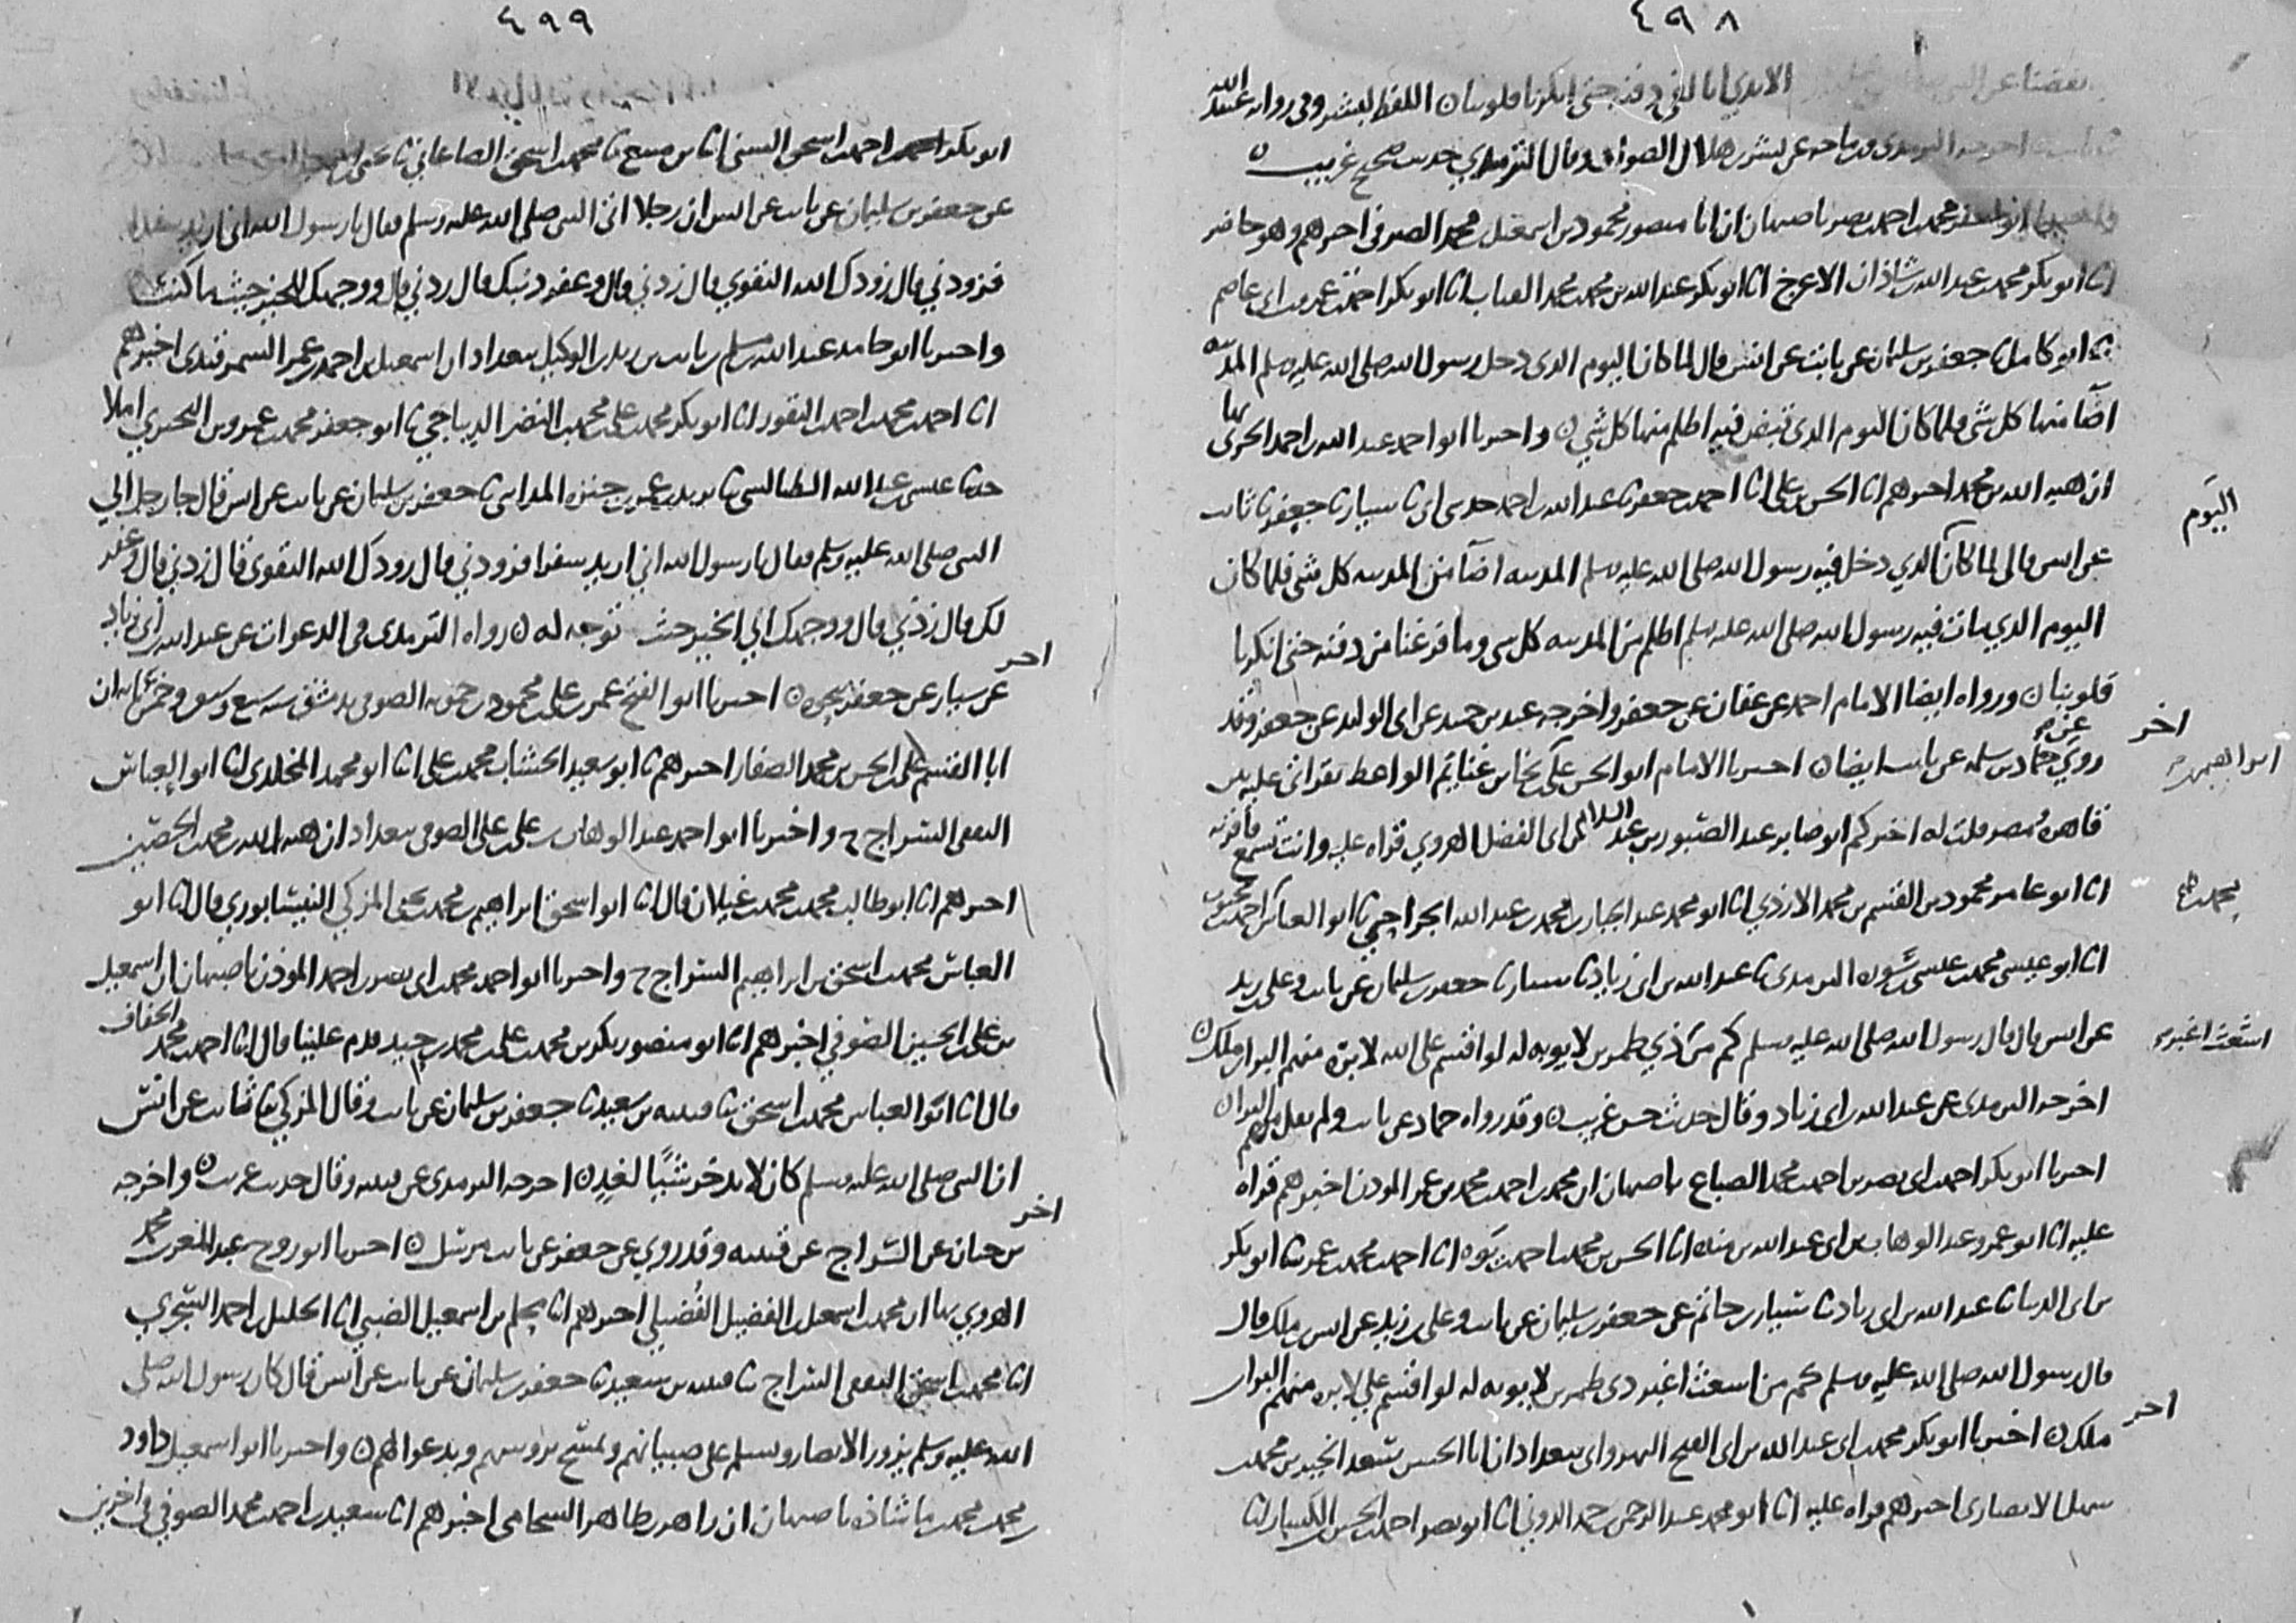 ٤٩٨
الايدي انا لفي دفنه حتى انكرنا قلوبنا ن اللفظ لبشر وفي روايه عبد الله
اخرجه الترمذي وابن ماجه عن بشر بن هلال الصواف وقال الترمذي حديث صحيح غريب ن
ابو جعفر محمد بن احمد بن نصر باصبهان ان ابا منصور محمود بن اسمعيل بن محمد الصيرفي اخبرهم وهو حاضر
انا ابو بكر محمد بن عبد الله بن شاذان الاعرج انا ابو بكر عبد الله بن محمد بن محمد القباب انا ابو بكر احمد بن عمرو بن ابي عاصم
ثنا ابو كامل ثنا جعفر بن سليمان عن ثابت عن انس قال لما كان اليوم الذي دخل رسول الله صلى الله عليه وسلم المدينه
اضآ منها كل شي فلما كان اليوم الذي قبض فيه اظلم منها كل شي ن واخبرنا ابو احمد عبد الله بن احمد الحربي بها
ان هبه الله بن محمد اخبرهم انا الحسن بن علي انا احمد بن جعفر ثنا عبد الله بن احمد حدثني ابي ثنا سيار ثنا جعفر ثنا ثابت
اليوم
عن انس قال لما كان الذي دخل فيه رسول الله صلى الله عليه وسلم المدينه اضآ من المدينه كل شي فلما كان
اليوم الذي مات فيه رسول الله صلى الله عليه وسلم اظلم من المدينه كل شي وما فرغنا من دفنه حتى انكرنا
قلوبنا ن ورواه ايضا الامام احمد عن عفان عن جعفر واخرجه عبد بن حميد عن ابي الوليد عن جعفر وقد
اخر
روي عن حماد بن سلمه عن ثابت ايضا ن اخبرنا الامام ابو الحسن علي بن نجا بن غنايم الواعظ بقراتي عليه
قاهره مصر قلت له اخبركم ابو صابر عبد الصبور بن عبد السلام بن ابي الفضل الهروي قراه عليه وانت تسمع فاقر به
انا ابو عامر محمود بن القسم بن محمد الازدي انا ابو محمد عبد الجبار بن محمد بن عبد الله الجراحي ثنا ابو العباس محمد بن احمد بن محبوب
انا ابو عيسى محمد بن عيسى بن سوره الترمذي ثنا عبد الله بن ابي زياد ثنا سيار ثنا جعفر بن سليمان عن ثابت وعلي بن زيد
عن انس قال قال رسول الله صلى الله عليه وسلم كم من ذي طمرين لا يوبه له لو اقسم على الله لابره منهم البرا بن ملك ن
اشعث اغبر
اخرجه الترمذي عن عبد الله بن ابي زياد وقال حديث حسن غريب ن وقد رواه حماد عن ثابت ولم يقل منهم البرا ن
اخبرنا ابو بكر احمد بن ابي نصر بن احمد بن محمد الصباغ باصبهان ان محمد بن احمد بن محمد بن عمر المودن اخبرهم قراه
عليه انا ابو عمرو عبد الوهاب بن ابي عبد الله بن منده انا الحسن بن محمد بن احمد بن يوه انا احمد بن محمد بن عمر ثنا ابو بكر
بن ابي الدنيا ثنا عبد الله بن ابي زياد ثنا سيار بن حاتم عن جعفر بن سليمان عن ثابت وعلي بن زيد عن انس بن ملك قال
قال رسول الله صلى الله عليه وسلم كم من اشعث اغبر ذي طمرين لا يوبه له لو اقسم على لابره منهم البرا بن
اخر
ملك ن اخبرنا ابو بكر محمد بن ابي عبد الله بن ابي الفتح النهرواني ببغداد ان ابا الحسن سعد الخير بن محمد بن
سهل الانصاري اخبرهم قراه عليه انا ابو محمد عبد الرحمن بن حمد الدوني انا ابو نصر احمد بن الحسين الكسار انا
٤٩٩
ابو بكر احمد بن محمد بن اسحق السني انا بن منيع ثنا محمد بن اسحق الصاغاني ثنا
عن جعفر بن سليمان عن ثابت عن انس ان رجلا اتى النبي صلى الله عليه وسلم فقال يا رسول الله اني اريد سفرا
فزودني قال زودك الله التقوى قال زدني قال وغفر ذنبك قال زدني قال ووجهك للخير حيث ما كنت ن
واخبرنا ابو حامد عبد الله بن مسلم بن ثابت بن زيد الوكيل ببغداد ان اسمعيل بن احمد بن عمر السمرقندي اخبرهم
انا احمد بن محمد بن احمد بن النقور انا ابو بكر محمد بن علي بن محمد بن النضر الديباجي ثنا ابو جعفر محمد بن عمرو بن البختري املا
حدثنا عيسى بن عبد الله الطيالسي ثنا يزيد بن عمر بن جنزه المدايني ثنا جعفر بن سليمان عن ثابت عن انس قال جا رجل الى
النبي صلى الله عليه وسلم فقال يا رسول الله اني اريد سفرا فزودني قال زودك الله التقوى قال زدني قال وغفر
لك قال زدني قال ووجهك الى الخير حيث توجه له ن رواه الترمذي في الدعوات عن عبد الله بن ابي زياد
اخر
عن سيار عن جعفر بنحوه ن اخبرنا ابو الفتح عمر بن علي بن محمد بن حمويه الصوفي بدمشق سنه سبع وسبعين وخمسمايه ان
ابا القسم علي بن الحسن بن محمد الصفار اخبرهم ثنا ابو سعيد الخشاب محمد بن علي انا ابو محمد المخلدي انا ابو العباس
الثقفي السراج ح واخبرنا ابو احمد عبد الوهاب بن علي بن علي الصوفي ببغداد ان هبه الله بن محمد بن الحصين
اخبرهم انا ابو طالب محمد بن محمد بن غيلان قال انا ابو اسحق ابراهيم بن محمد بن يحيى المزكي النيسابوري قال انا ابو
العباس محمد بن اسحق بن ابراهيم السراج ح واخبرنا ابو احمد محمد بن ابي نصر بن احمد المودن باصبهان ان اسمعيل
بن علي بن الحسين الصوفي اخبرهم انا ابو منصور بكر بن محمد بن علي بن محمد بن حيد قدم علينا قال انا احمد بن محمد الخفاف
قال انا ابو العباس محمد بن اسحق ثنا قتيبه بن سعيد ثنا جعفر بن سليمان عن ثابت وقال المزكي ثنا ثابت عن انس
ان النبي صلى الله عليه وسلم كان لا يدخر شيًا لغد ن اخرجه الترمذي عن قتيبه وقال حديث غريب ن واخرجه
اخر
بن حبان عن السراج عن قتيبه وقد روي عن جعفر عن ثابت مرسل ن اخبرنا ابو روح عبد المعز بن محمد
الهروي بها ان محمد بن اسمعيل بن الفضيل الفضيلي اخبرهم انا محلم بن اسمعيل الضبي انا الخليل بن احمد السجزي
انا محمد بن اسحق الثقفي السراج ثنا قتيبه بن سعيد ثنا جعفر بن سليمان عن ثابت عن انس قال كان رسول الله صلى
الله عليه وسلم يزور الانصار ويسلم على صبيانهم ويمسح بروسهم ويدعوا لهم ن واخبرنا ابو اسمعيل داود
بن محمد بن محمد بن ماشاذه باصبهان ان زاهر بن طاهر الشحامي اخبرهم انا سعيد بن احمد بن محمد الصوفي في اخرين